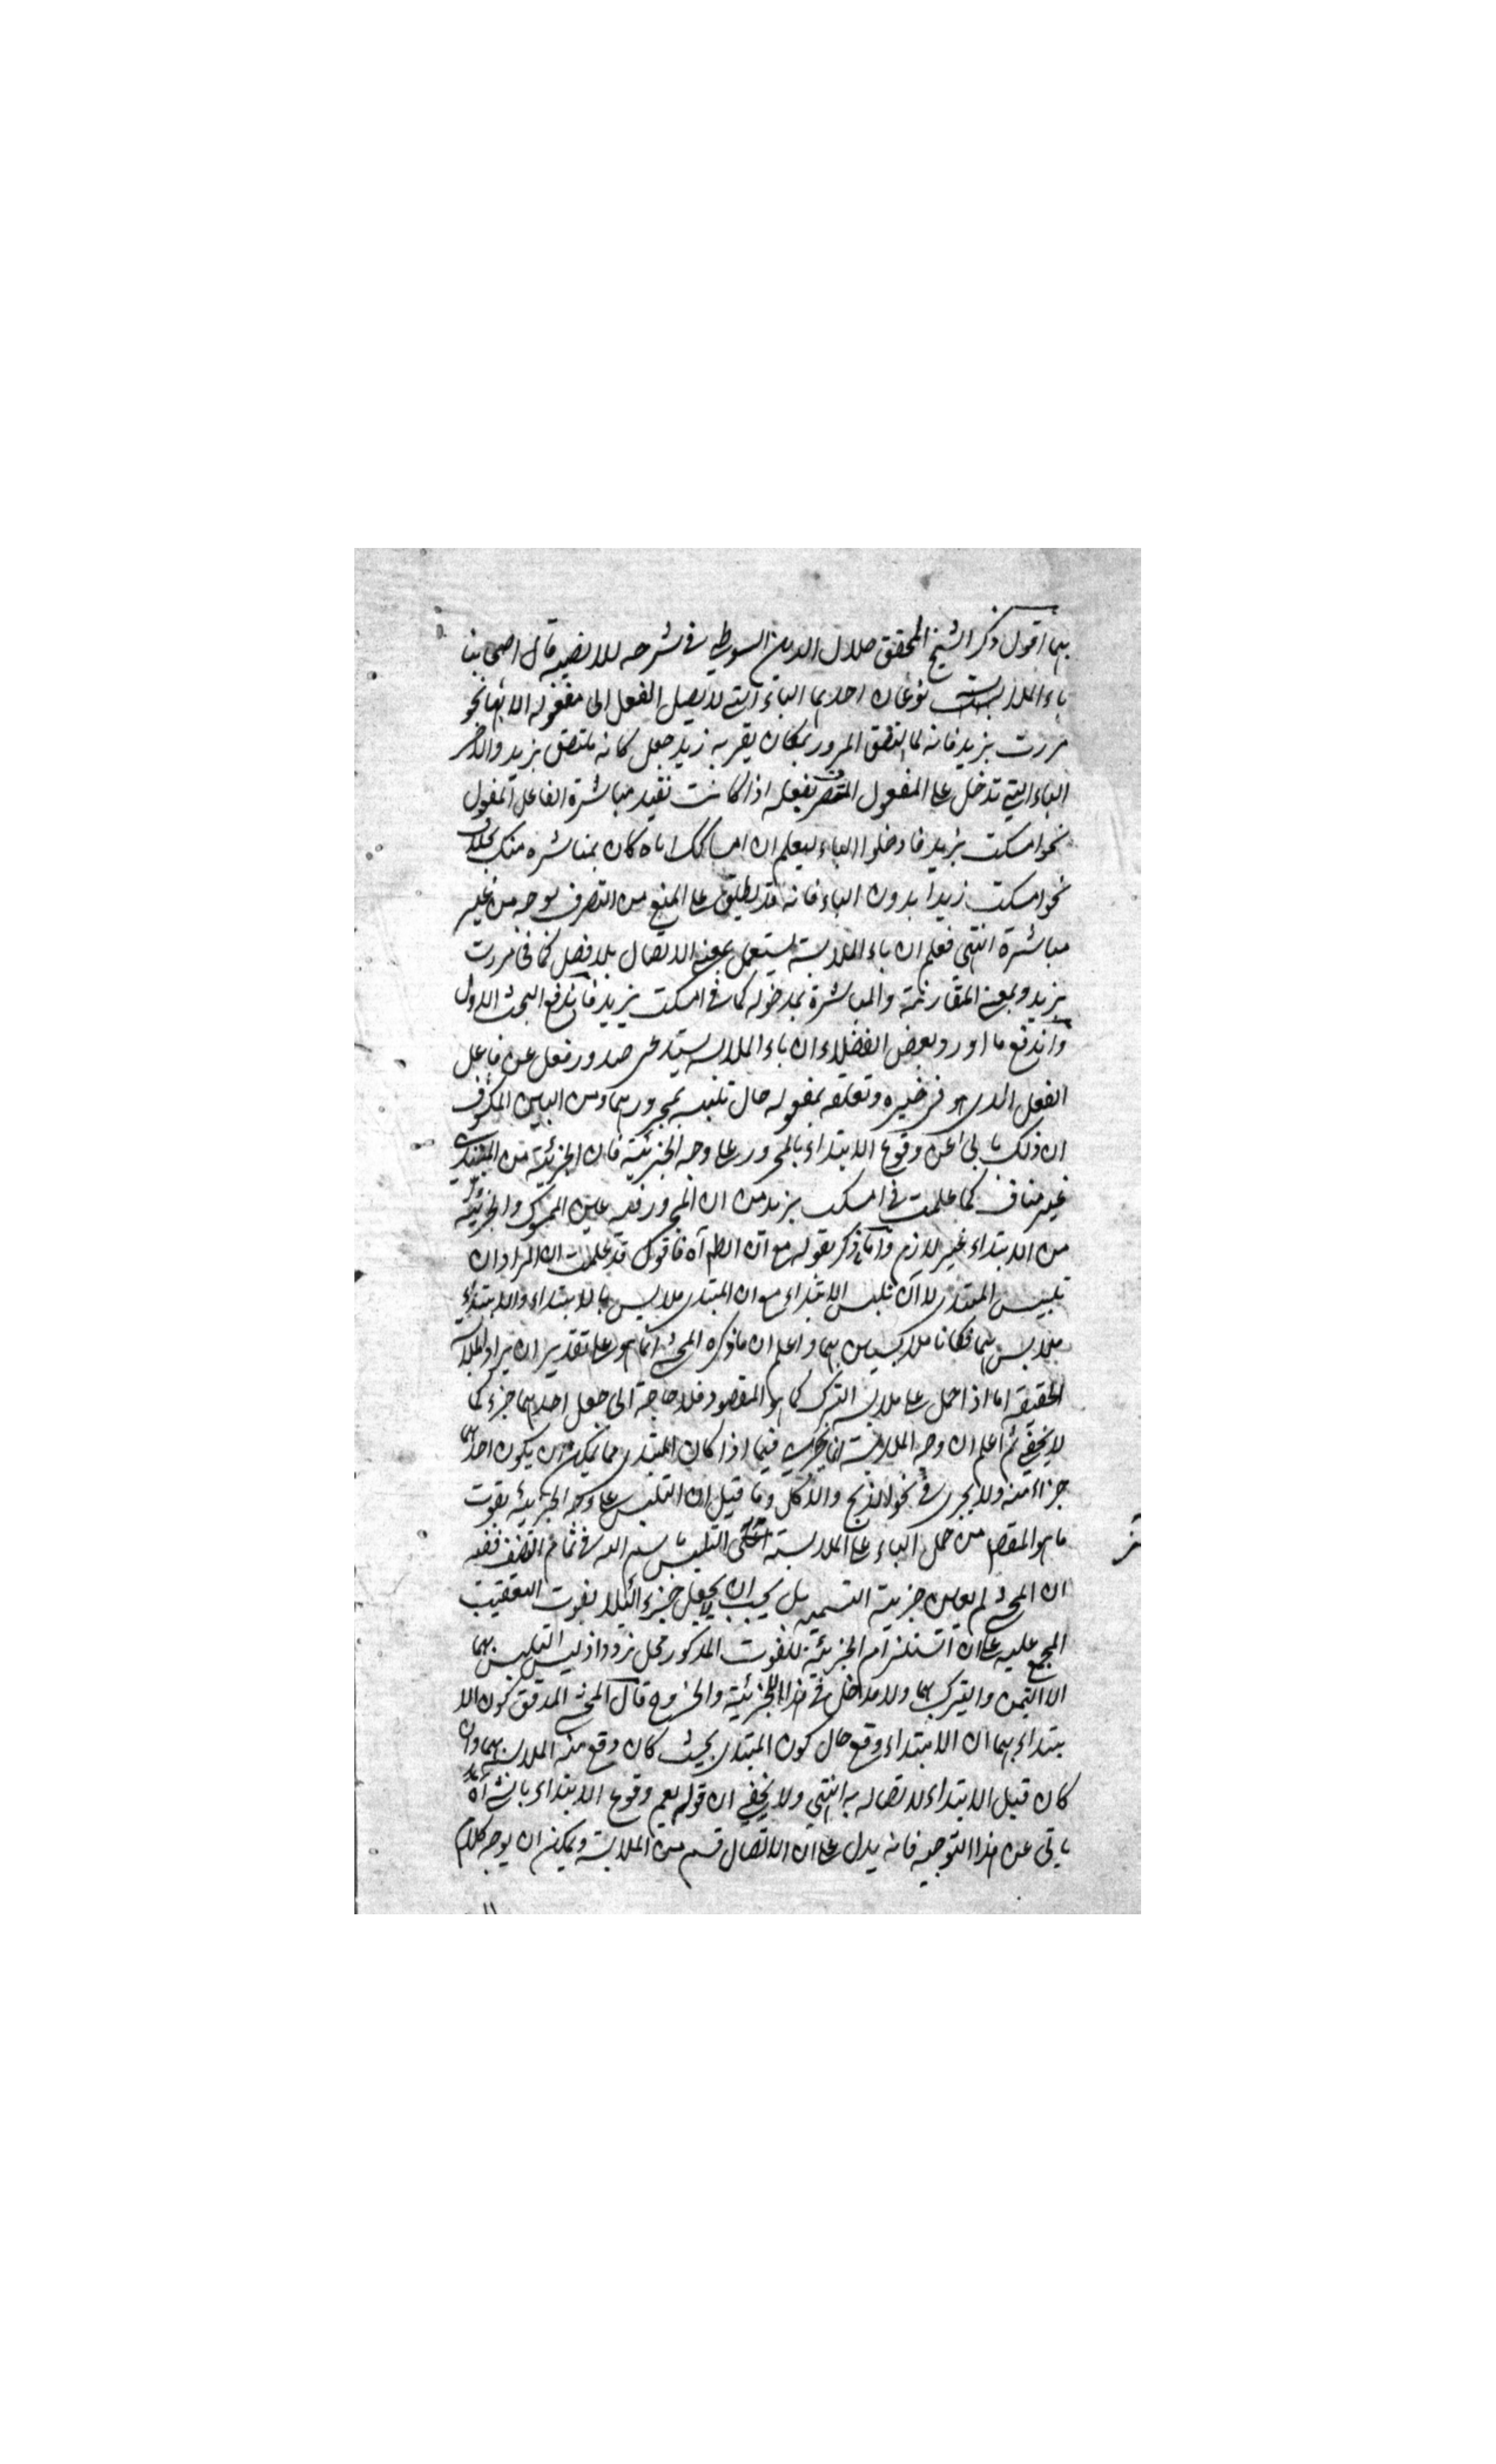 بهما اقول ذكر الشيخ المحقق جلال الدين السيوطي في شرحه للالفية قال اصحابنا
باء الملابسة نوعان احديهما الباء التي لا يصل الفعل الى مفعوله الا بها نحو
مررت بزيد فانه لما التصق المرور بمكان يقرب زيد جعل كانه ملتصق بزيد والاخر
الباء التي تدخل على المفعول المنتصب بفعله اذا كانت تفيد مباشرة الفاعل للمفعول
نحو امسكت بزيد فادخلوا الباء ليعلم ان امساكك اياه كان بمباشرة منك بخلاف
نحو امسكت زيدا بدون الباء فانه قد يطلق على المنع من التصرف بوجه من غير
مباشرة انتهى فعلم ان باء الملابسة يستعمل بمعنى الاتصال بلا فصل كما في مررت
بزيد وبمعنى المقارنة والمباشرة بمدخوله كما في امسكت بزيد فاندفع البحث الاول
واندفع ما اورد بعض الفضلاء ان باء الملابسة يستدعي صدور فعل عن فاعل
الفعل الذي هو في خبره وتعلقه بمفعوله حال تلبسه بمجرورها ومن البين المكشوف
ان ذلك يابى عن وقوع الابتداء بالمجرور على وجه الجزئية فان الجزئية من المبتدي
غير مناف كما علمت في امسكت بزيد من ان المجرور فيه عين الممسوك والجزئية
من الابتداء غير لازم واما ما ذكر بقوله مع ان الظ اه فاقول قد علمت ان المراد ان
تلبيس المبتدي لا ان تلبس الابتداء مع ان المبتدي ملابس بالابتداء والابتداء
ملابس بهما فكانا ملابسين بهما واعلم ان ما ذكره المحشي انما هو على تقدير ان يراد الملابسة
الحقيقة اما اذا حمل على ملابسة التبرك كما هو المقصود فلا حاجة الى جعل احديهما جزء كما
لا يخفى ثم اعلم ان وجه الملابسة انما يجري فيما اذا كان المبتدي مما يمكن ان يكون احديهما
جزاء منه ولا يجري في نحو الذبح والاكل وما قيل ان التلبس على وجه الجزئية يفوت
ما هو المقصد من حمل الباء على الملابسة اعني التلبس باسم الله في تمام التصنيف ففيه
ان المحشي لم يعين جزئية التسمية بل يجب ان لا يجعل جزء لئلا يفوت التعقيب
المجمع عليه على ان استلزام الجزئية للفوت المذكور محل تردد اذ ليس التلبس بهما
الا التيمن والتبرك بهما ولا مدخل في هذا للجزئية والخروج قال المحشي المدقق كون الا
بتداء بهما ان الابتداء وقع حال كون المبتدي بحيث كان وقع منه الملابسة بهما وان
كان قبل الابتداء لاتصاله به انتهى ولا يخفى ان قوله يعم وقوع الابتداء بالشيء اه
يابى عن هذا التوجيه فانه يدل على ان الاتصال قسم من الملابسة ويمكن ان يوجه كلام